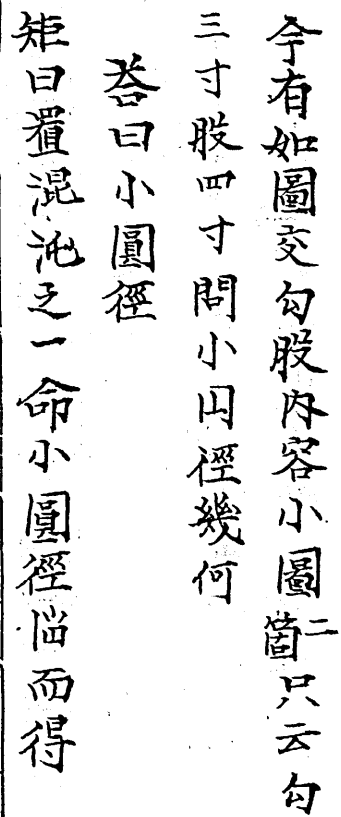 今有如圖交勾股内容小圖二箇只云勾
三寸股四寸問小円徑幾何
荅曰小圓徑
矩曰置混沌之一命小圓徑
而得